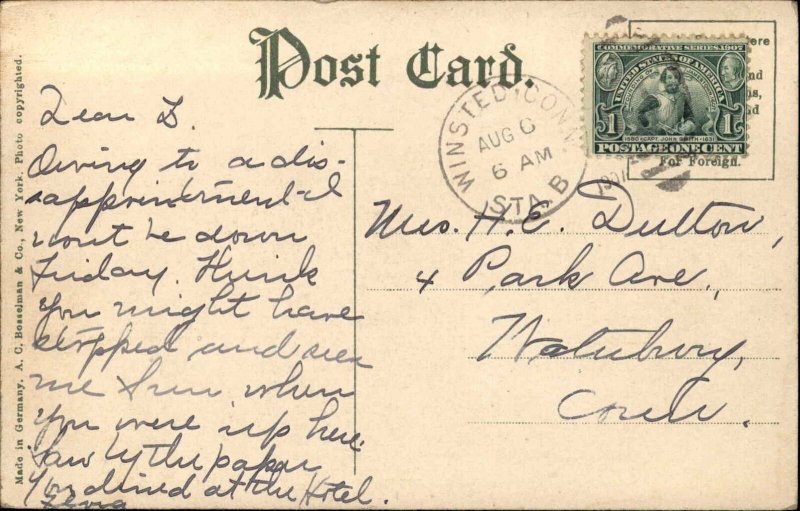 Post Card.
Made in Germany. A. C. Bosselman & Co., New York. Photo copyrighted.
Dear D.
Owing to a dis-
appointment I
wont be down
Friday. Think
you might have
stopped and seen
me Sun. when
you were up here.
Saw by the paper
you dined at the Hotel.
WINSTED, CONN.
AUG 6
6 AM
STA. B
1907
COMMEMORATIVE SERIES 1907
UNITED STATES OF AMERICA
1 1
1580 CAPT. JOHN SMITH 1631
POSTAGE ONE CENT
For Foreign.
Mrs. H. E. Dutton,
4 Park Ave.,
Waterbury,
Conn.